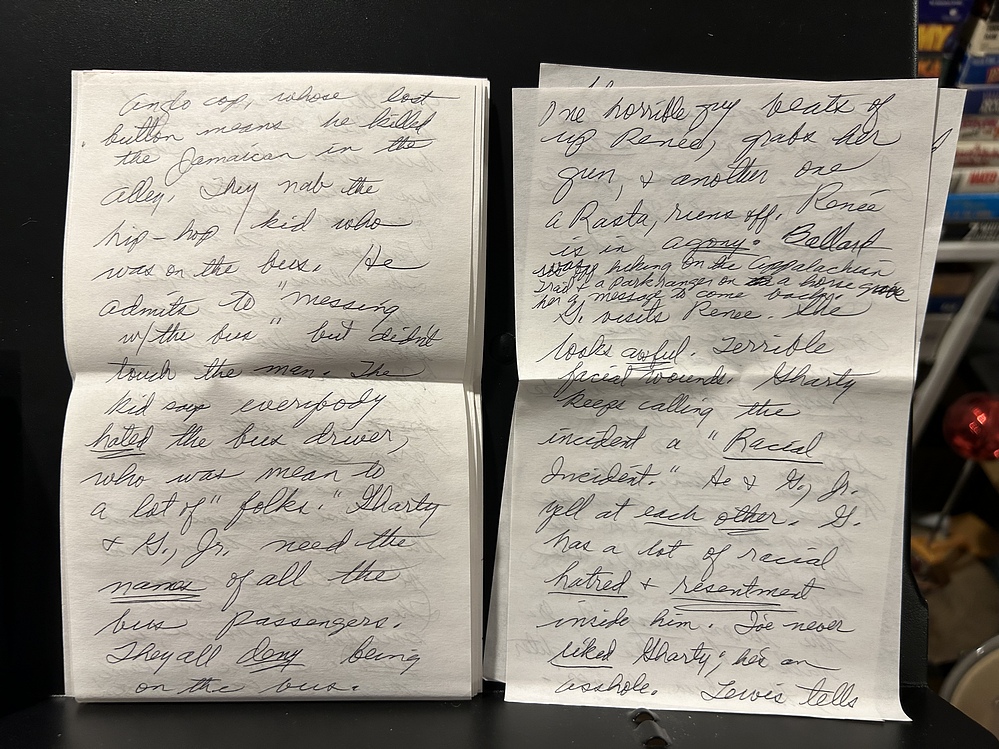 Anglo cop, whose lost
button means he killed
the Jamaican in the
alley. They nab the
hip-hop kid who
was on the bus. He
admits to "messing
w/the bus" but didn't
touch the man. The
kid says everybody
hated the bus driver,
who was mean to
a lot of "folks." Gharty
& G., Jr. need the
names of all the
bus passengers.
They all deny being
on the bus.
One horrible guy beats of
up Renee, grabs her
gun, & another one
a Rasta, runs off. Renee
is in agony. Ballard
was off hiking on the Appalachian
Trail & a park ranger on a horse gave
her a message to come back.
G. visits Renee. She
looks awful. Terrible
facial wounds. Gharty
keeps calling the
incident a "Racial
Incident." He & G., Jr.
yell at each other. G.
has a lot of racial
hatred & resentment
inside him. I've never
liked Gharty; he's an
asshole. Lewis tells
MY
NATO